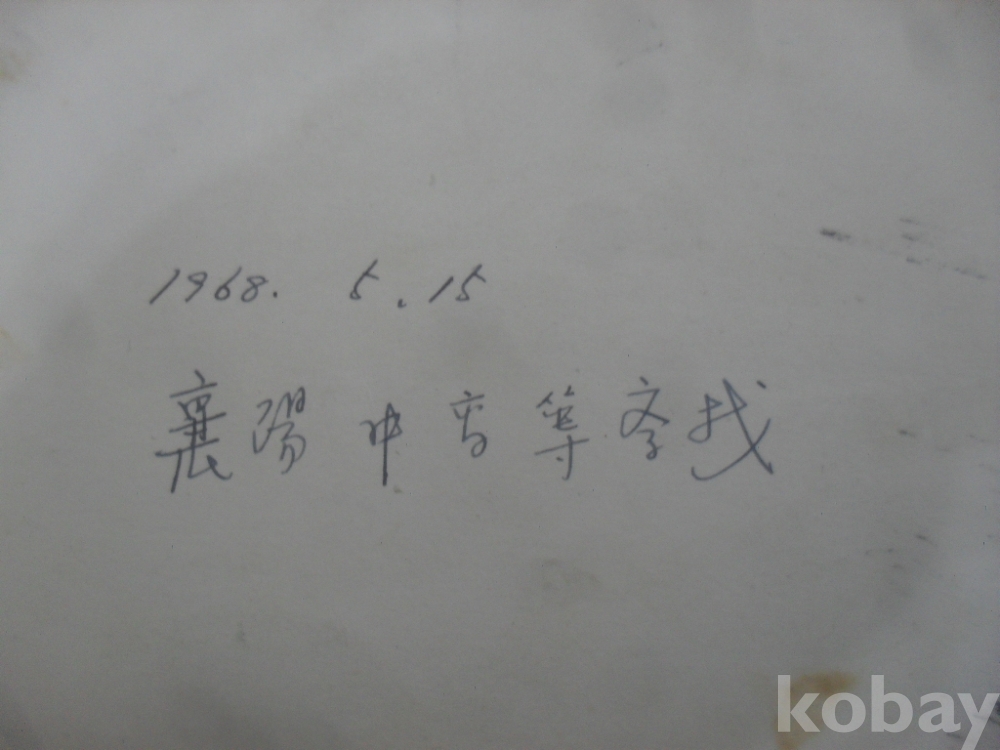 1968. 5.15
襄陽中高等学校
kobay